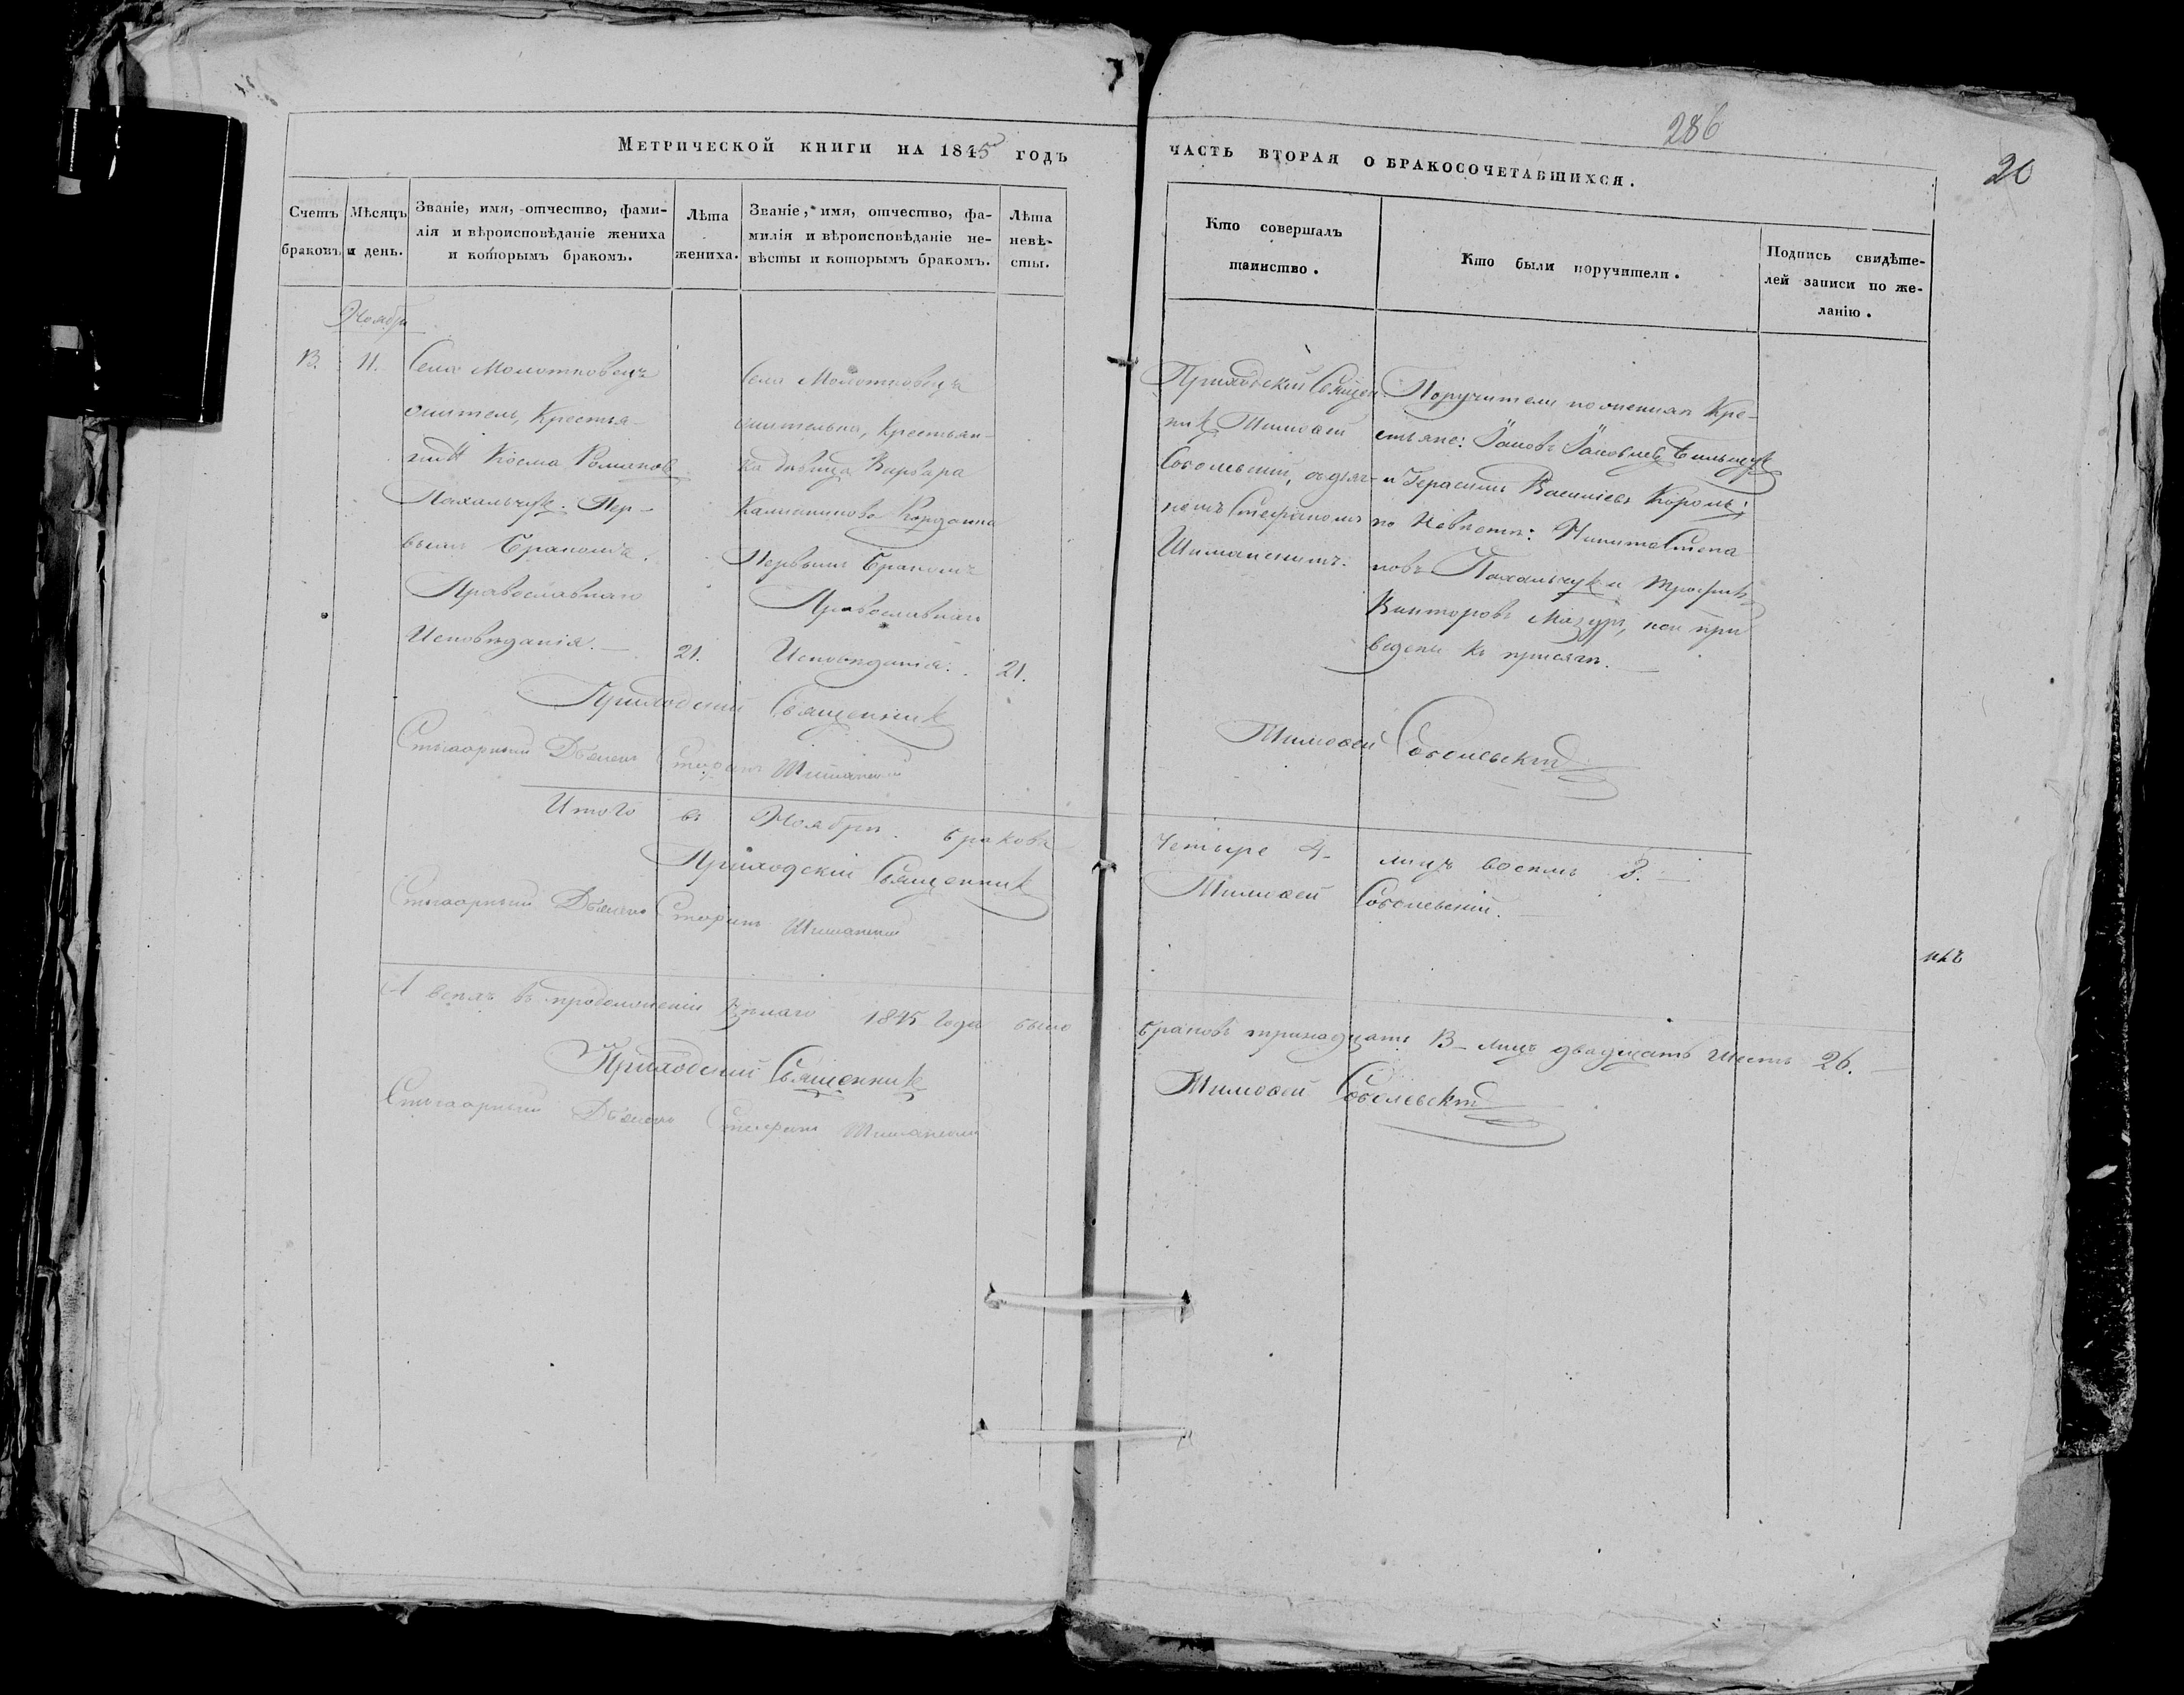 286
20
Метрической книги на 1845 годъ
часть вторая о бракосочетавшихся.
Счетъ браковъ
Мѣсяцъ и день.
Званіе, имя, отчество, фами-
лія и вѣроисповѣданіе жениха
и которымъ бракомъ.
Лѣта
жениха.
Званіе, имя, отчество, фа-
милія и вѣроисповѣданіе не-
вѣсты и которымъ бракомъ.
Лѣта
невѣ-
сты.
Кто совершалъ
таинство.
Кто были поручители.
Подпись свидѣте-
лей записи по же-
ланію.
Ноябрь
13.
11.
Села Молотковецъ
житель, Крестья-
нинъ Косма Романовъ
Пахальчукъ. Пер-
вымъ Бракомъ.
Православнаго
Исповѣданія.
21.
Села Молотковецъ
жителька, Крестьян-
ка дѣвица Варвара
Калинникова
Первымъ Бракомъ
Православнаго
Исповѣданія.
21.
Приходскій Священ-
никъ Тимоѳей
Соболевскій, съ дьяч-
комъ Стефаномъ
Шиманскимъ.
Поручители по женихѣ Кре-
стьяне: Іаковъ Іаковлевъ
и Герасимъ Василіевъ Король;
по Невѣстѣ: Никита Степа-
новъ Пахальчукъ и Трофимъ
Викторовъ Мазуръ, кои при
ведены къ присягѣ.
Приходскій Священникъ
Тимоѳей Соболевскій
Стефанъ Шиманскій
Итого въ Ноябрѣ браковъ четыре 4. лицъ восемь 8.
Приходскій Священникъ Тимоѳей Соболевскій.
Стефанъ Шиманскій
А всѣхъ въ продолженіи цѣлаго 1845 года было браковъ тринадцать 13 лицъ двадцать шесть 26.
Приходскій Священникъ Тимоѳей Соболевскій
Стефанъ Шиманскій